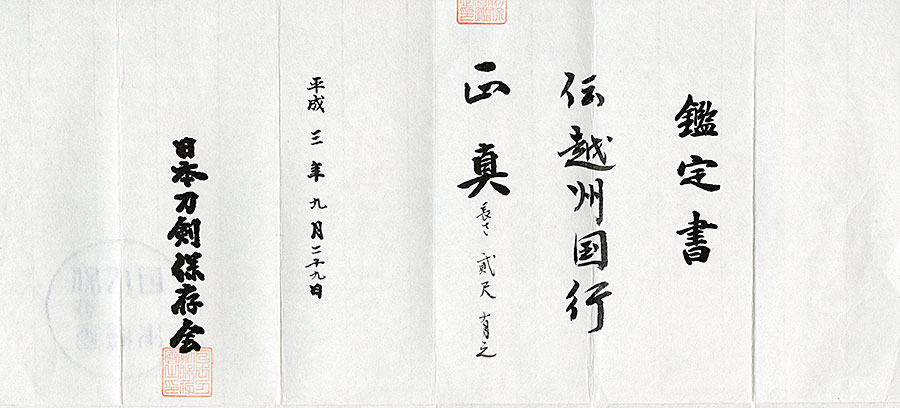 鑑定書
伝越州国行
正真 長さ 貮尺 有之
平成三年九月二十九日
日本刀剣保存会